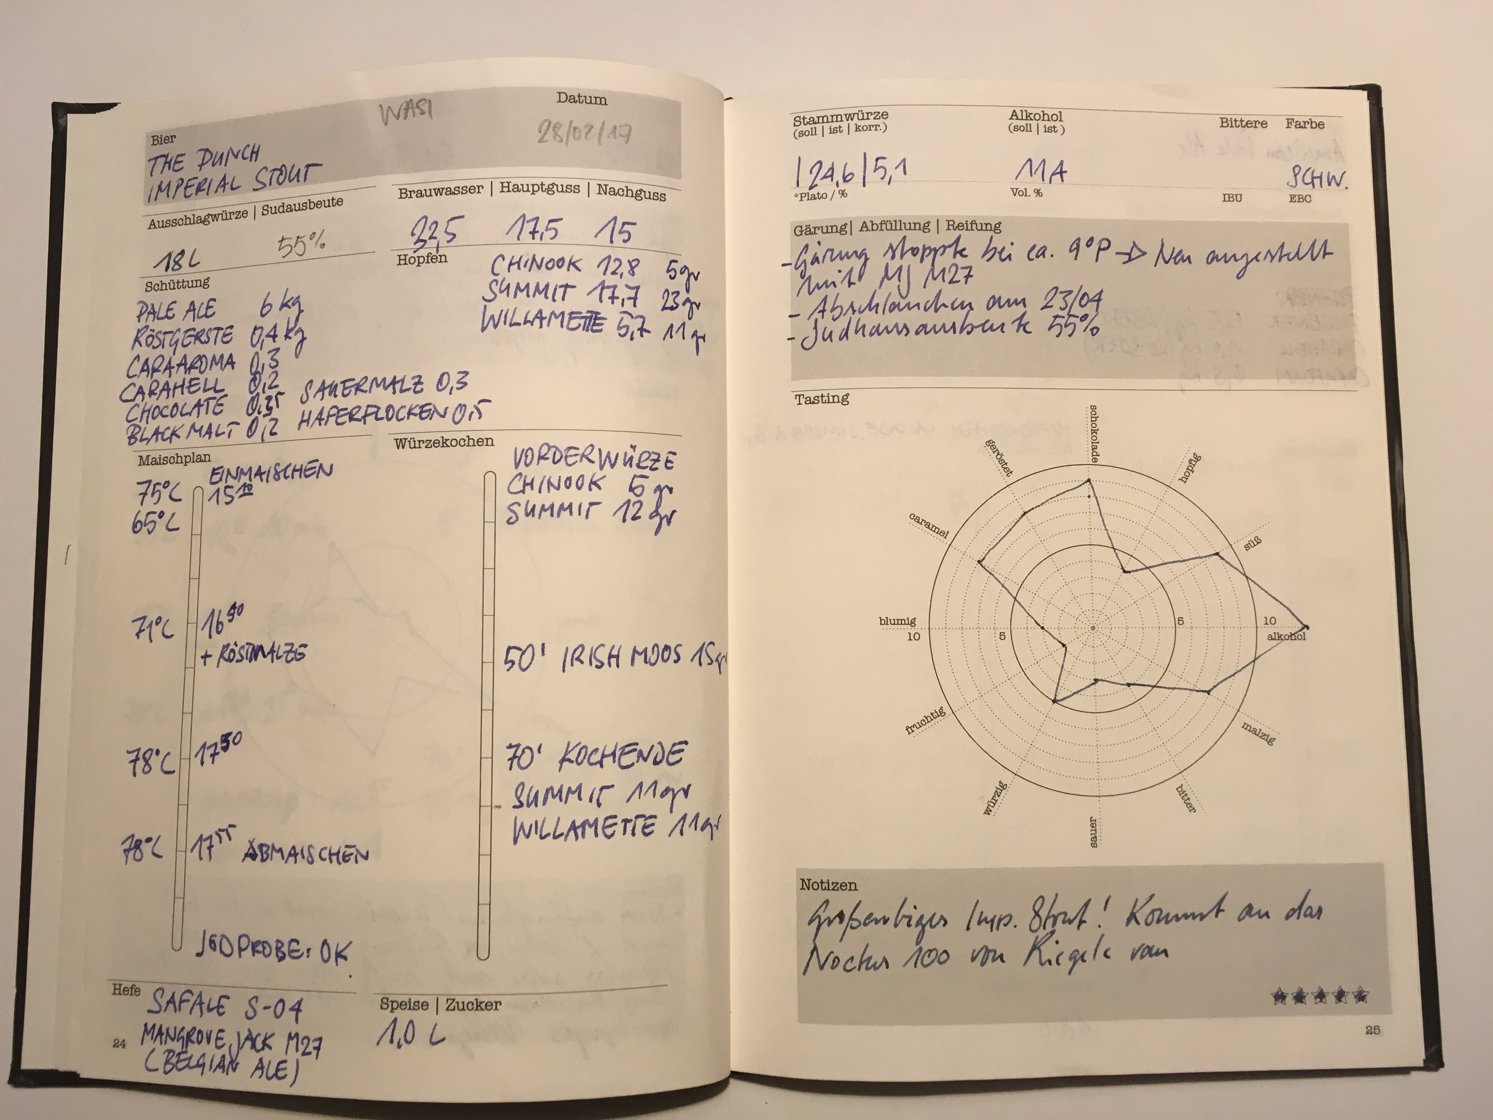 Bier
WASI
Datum
28/02/17
THE PUNCH
IMPERIAL STOUT
Ausschlagwürze | Sudausbeute
18L 55%
Brauwasser | Hauptguss | Nachguss
32,5 17,5 15
Schüttung
PALE ALE 6 kg
RÖSTGERSTE 0,4 kg
CARAAROMA 0,3
CARAHELL 0,2 SAUERMALZ 0,3
CHOCOLATE 0,35 HAFERFLOCKEN 0,5
BLACK MALT 0,2
Hopfen
CHINOOK 12,8 5gr
SUMMIT 17,7 23gr
WILLAMETTE 5,7 11gr
Maischplan
EINMAISCHEN
75°C 15
65°C
71°C 16
+ RÖSTMALZE
78°C 17
78°C 17 ABMAISCHEN
JODPROBE: OK
Würzekochen
VORDERWÜRZE
CHINOOK 5 gr
SUMMIT 12 gr
50' IRISH MOOS 15gr
70' KOCHENDE
SUMMIT 11gr
WILLAMETTE 11gr
Hefe
SAFALE S-04
MANGROVE JACK M27
(BELGIAN ALE)
Speise | Zucker
1,0 L
24
Stammwürze
(soll | ist | korr.)
| 24,6 | 5,1
°Plato / %
Alkohol
(soll | ist )
11,1
Vol. %
Bittere
IBU
Farbe
SCHW.
EBC
Gärung| Abfüllung | Reifung
- Gärung stoppte bei ca. 9°P → Neu angestellt
mit MJ M27
- Abschlauchen am 23/04
- Sudhausausbeute 55%
Tasting
schokolade
hopfig
süß
alkohol
malzig
bitter
sauer
würzig
fruchtig
blumig
caramel
geröstet
10 5 5 10
Notizen
Großartiges Imp. Stout! Kommt an das
Noctus 100 von Riegele ran
25